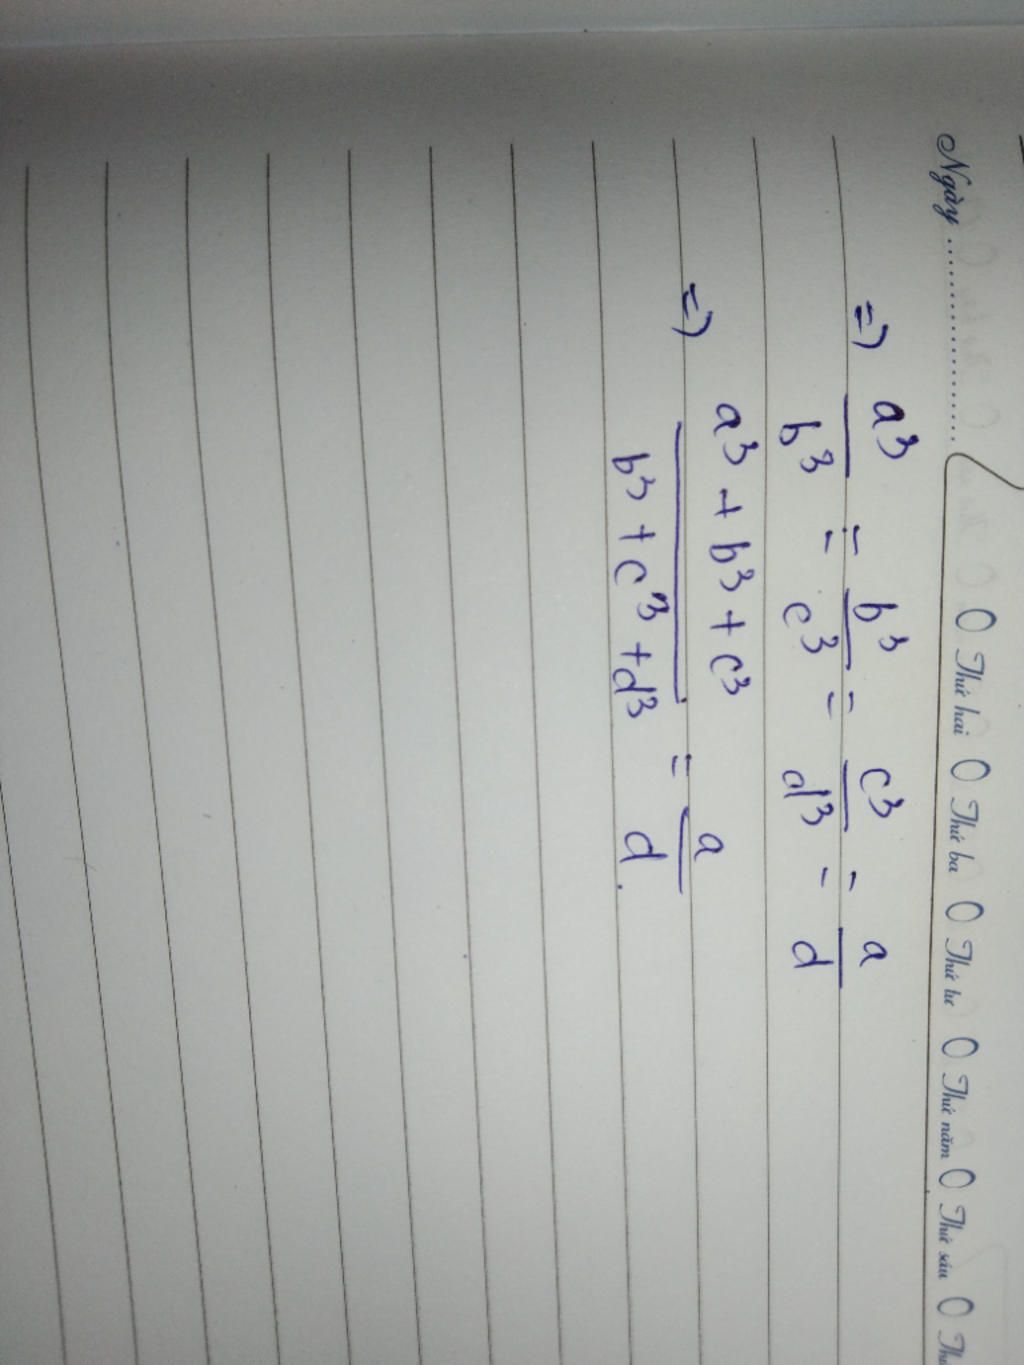 Ngày .................... O Thứ hai O Thứ ba O Thứ tư O Thứ năm O Thứ sáu O
=) a³/b³ = b³/c³ = c³/d³ = a/d
=) (a³ + b³ + c³)/(b³ + c³ + d³) = a/d.